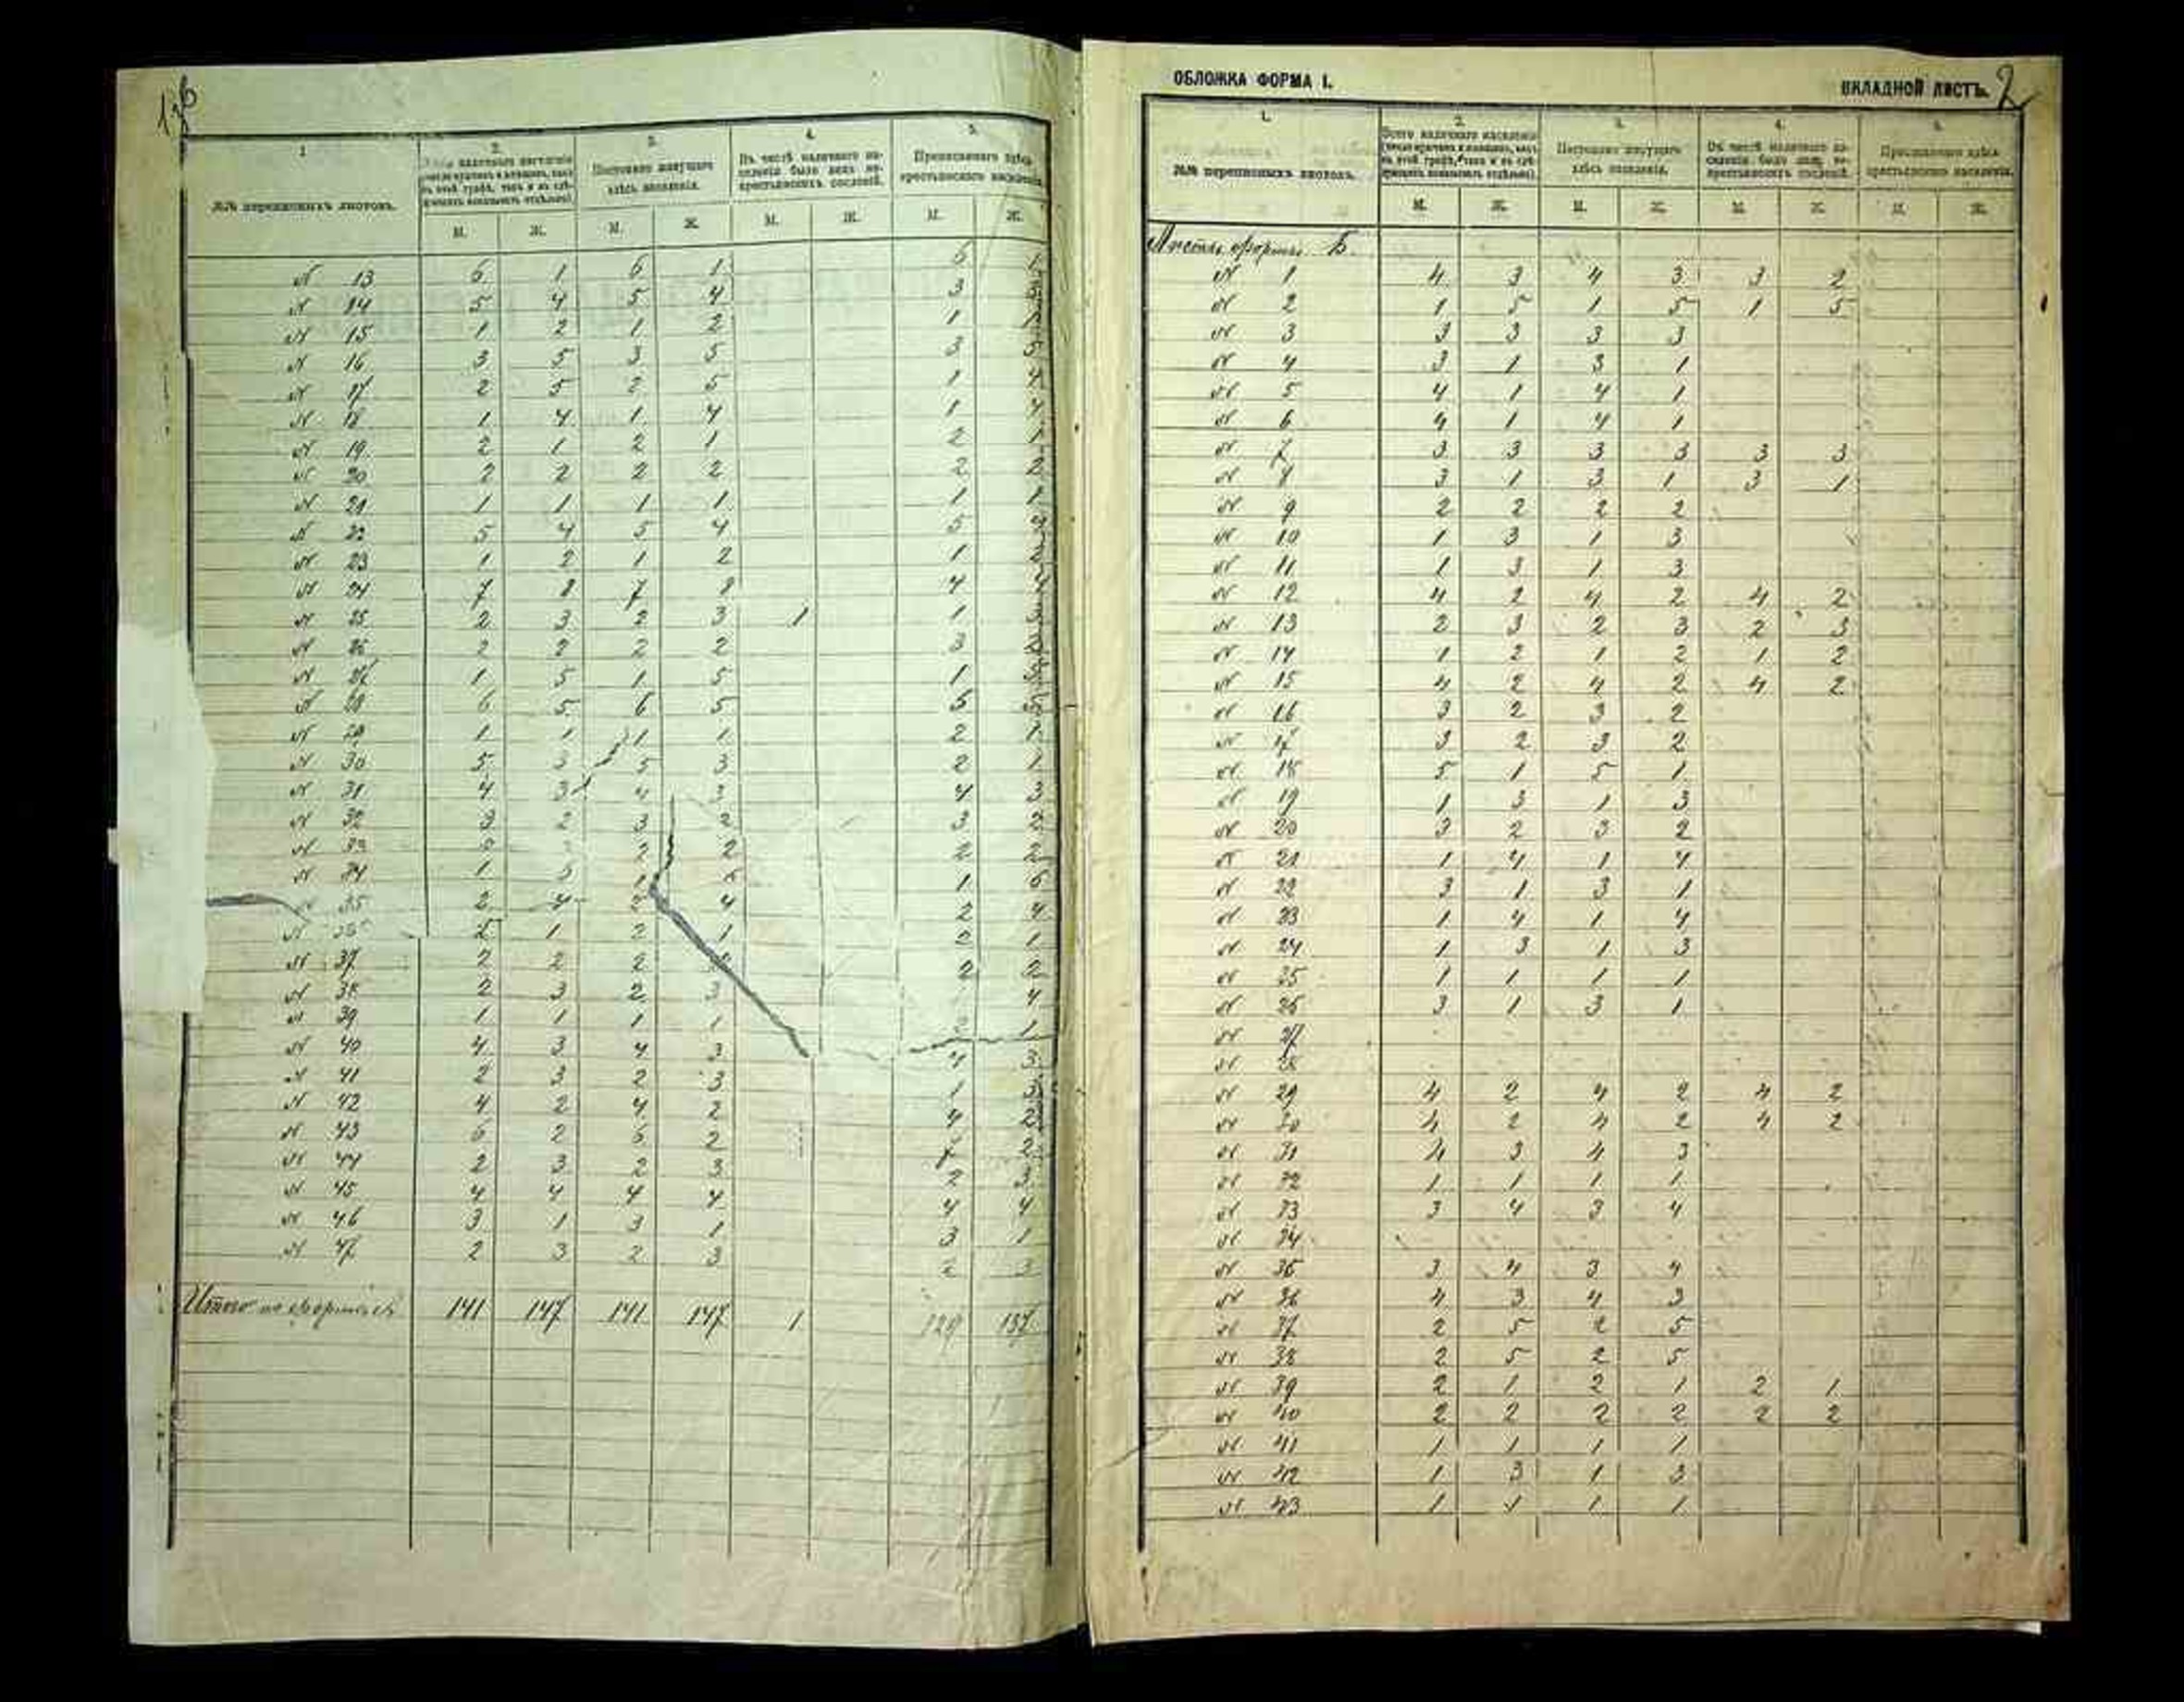 136
1 2. 3. 4. 5.
№№ переписныхъ листовъ. Постоянно живущаго здѣсь населенія. Въ числѣ наличнаго населенія было лицъ не-крестьянскихъ сословій. Приписаннаго здѣсь крестьянскаго населенія.
М. Ж. М. Ж. М. Ж. М. Ж.
№ 13 6 1 6 1 6 1
№ 14 5 4 5 4 3
№ 15 1 2 1 2 1
№ 16 3 5 3 5 3 5
№ 17 2 5 2 5 1 4
№ 18 1 4 1 4 1 4
№ 19 2 1 2 1 2 1
№ 20 2 2 2 2 2 2
№ 21 1 1 1 1 1 1
№ 22 5 4 5 4 5 4
№ 23 1 2 1 2 1 2
№ 24 7 8 7 8 4
№ 25 2 3 2 3 1 1 3
№ 26 2 2 2 2 3
№ 27 1 5 1 5 1
№ 28 6 5 6 5 5 5
№ 29 1 1 1 1 2 1
№ 30 5 3 5 3 2 1
№ 31 4 3 4 3 4 3
№ 32 3 2 3 2 3 2
№ 33 2 2 2 2 2
№ 34 1 1 1 6
№ 35 2 4 2 4 2 4
№ 36 2 1 2 1 2 1
№ 37 2 2 2 2 2
№ 38 2 3 2 3 4
№ 39 1 1 1 1 1
№ 40 4 3 4 3 4 3
№ 41 2 3 2 3 1 3
№ 42 4 2 4 2 4 2
№ 43 6 2 6 2 7 2
№ 44 2 3 2 3 2 3
№ 45 4 4 4 4 4 4
№ 46 3 1 3 1 3 1
№ 47 2 3 2 3 2 3
Итого по формѣ 141 147 141 147 1 129 137
ОБЛОЖКА ФОРМА I. ВКЛАДНОЙ ЛИСТЪ. 2
1. 2. 3. 4. 5.
№№ переписныхъ листовъ. Всего наличнаго населенія Постоянно живущаго здѣсь населенія. Въ числѣ наличнаго населенія было лицъ не-крестьянскихъ сословій. Приписаннаго здѣсь крестьянскаго населенія.
М. Ж. М. Ж. М. Ж. М. Ж.
Листы формы Б.
№ 1 4 3 4 3 3 2
№ 2 1 5 1 5 1 5
№ 3 3 3 3 3
№ 4 3 1 3 1
№ 5 4 1 4 1
№ 6 4 1 4 1
№ 7 3 3 3 3 3 3
№ 8 3 1 3 1 3 1
№ 9 2 2 2 2
№ 10 1 3 1 3
№ 11 1 3 1 3
№ 12 4 2 4 2 4 2
№ 13 2 3 2 3 2 3
№ 14 1 2 1 2 1 2
№ 15 4 2 4 2 4 2
№ 16 3 2 3 2
№ 17 3 2 3 2
№ 18 5 1 5 1
№ 19 1 3 1 3
№ 20 3 2 3 2
№ 21 1 4 1 4
№ 22 3 1 3 1
№ 23 1 4 1 4
№ 24 1 3 1 3
№ 25 1 1 1 1
№ 26 3 1 3 1
№ 27
№ 28
№ 29 4 2 4 2 4 2
№ 30 4 2 4 2 4 2
№ 31 4 3 4 3
№ 32 1 1 1 1
№ 33 3 4 3 4
№ 34
№ 35 3 4 3 4
№ 36 4 3 4 3
№ 37 2 5 2 5
№ 38 2 5 2 5
№ 39 2 1 2 1 2 1
№ 40 2 2 2 2 2 2
№ 41 1 1 1 1
№ 42 1 3 1 3
№ 43 1 1 1 1